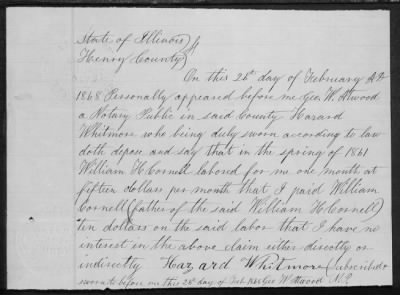 State of Illinois }
Henry County }
On this 28th day of February A.D.
1868 Personally appeared before me Geo. W. Atwood
a Notary Public in said County Hazard
Whitmore who being duly sworn according to law
doth depose and say that in the spring of 1861
William H Cornell labored for me one month at
fifteen dollars per month that I paid William
Cornell (father of the said William H Cornell)
ten dollars on the said labor that I have no
interest in the above claim either directly or
indirectly Hazard Whitmore (Subscribed &
sworn to before me this 28th day of Feb 1868 Geo W Atwood N.P.